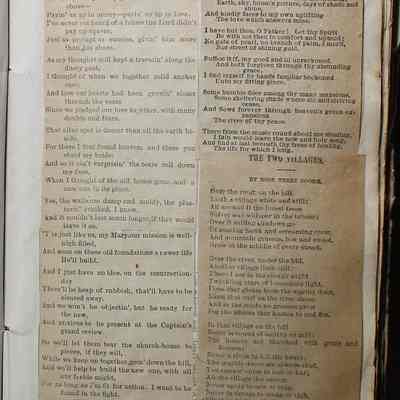 shares—
Payin' us up in mercy-partin' us up in love.
I've never yet heard of a fellow the Lord didn't
pay up square,
Just as prompt as
than his share.
As my thoughts still kept a travelin' along the
dusty past,
I thought of when we together sold another
one;
And how our hearts had been growin' closer
through the years
Since we pledged our love together, with many
doubts and fears.
That altar spot is dearer than all the earth be-
side,
For there I first found heaven, and there you
stood my bride;
And so it ain't surprisin' the tears roll down
my face,
When I thought of the old house gone and a
new one in its place.
Yes, the walls was damp and moldy, the plas-
terin' cracked, I know,
And it couldn't last much longer, if they would
leave it so.
'T is just like us, my Mary, our mission is well-
nigh filled,
And soon on these old foundations a newer life
He'll build.
And I just have an idea, on the resurrection-
day
There'll be heaps of rubbish, that'll have to be
cleared away.
And we won't be objectin', but be ready for
the new,
And to be present at the Captain's
grand review.
So we'll let them tear the church-house to
pieces, if they will,
While we keep on together goin' down the hill,
And we'll help to build the new one, with all
our feeble might,
For as long as I'm fit for action I want to be
found in the fight.
Earth, sky, home's picture, days of shade and
shine,
And kindly faces to my own uplifting
The love which answers mine.
I have but thee, O Father! Let thy Spirit
Be with me then to comfort and uphold;
No gate of pearl, no branch of palm, I merit,
Nor street of shining gold.
Suffice it if, my good and ill unreckoned,
And both forgiven through thy abounding
grace,
I find myself by hands familiar beckoned
Unto my fitting place.
Some humble door among thy many mansions,
Some sheltering shade where sin and striving
cease,
And flows forever through heaven's green ex-
pansions
The river of thy peace.
There from the music round about me stealing,
I fain would learn the new and holy song,
And find at last beneath thy trees of healing,
The life for which I long.
THE TWO VILLAGES.
BY ROSE TERRY COOKE.
Over the river, on the hill,
Lieth a village white and still;
All around it the forest trees
Shiver and whisper in the breeze;
Over it sailing shadows go
Of soaring hawk and screaming crow,
And mountain grasses, low and sweet,
Grow in the middle of every street.
Over the river, under the hill,
Another village lieth still;
There I see in the cloudy night
Twinkling stars of household light,
Fires that gleam from the smithy door,
Mists that curl on the river shore;
And in the roads no grasses grow
For the wheels that hasten to and fro.
In that village on the hill
Never is sound of smithy or mill;
The houses are thatched with grass and
flowers,
Never a clock to tell the hours;
The marble doors are always shut,
You cannot enter in hall or hut;
All the village lie asleep,
Never again to sow or reap,